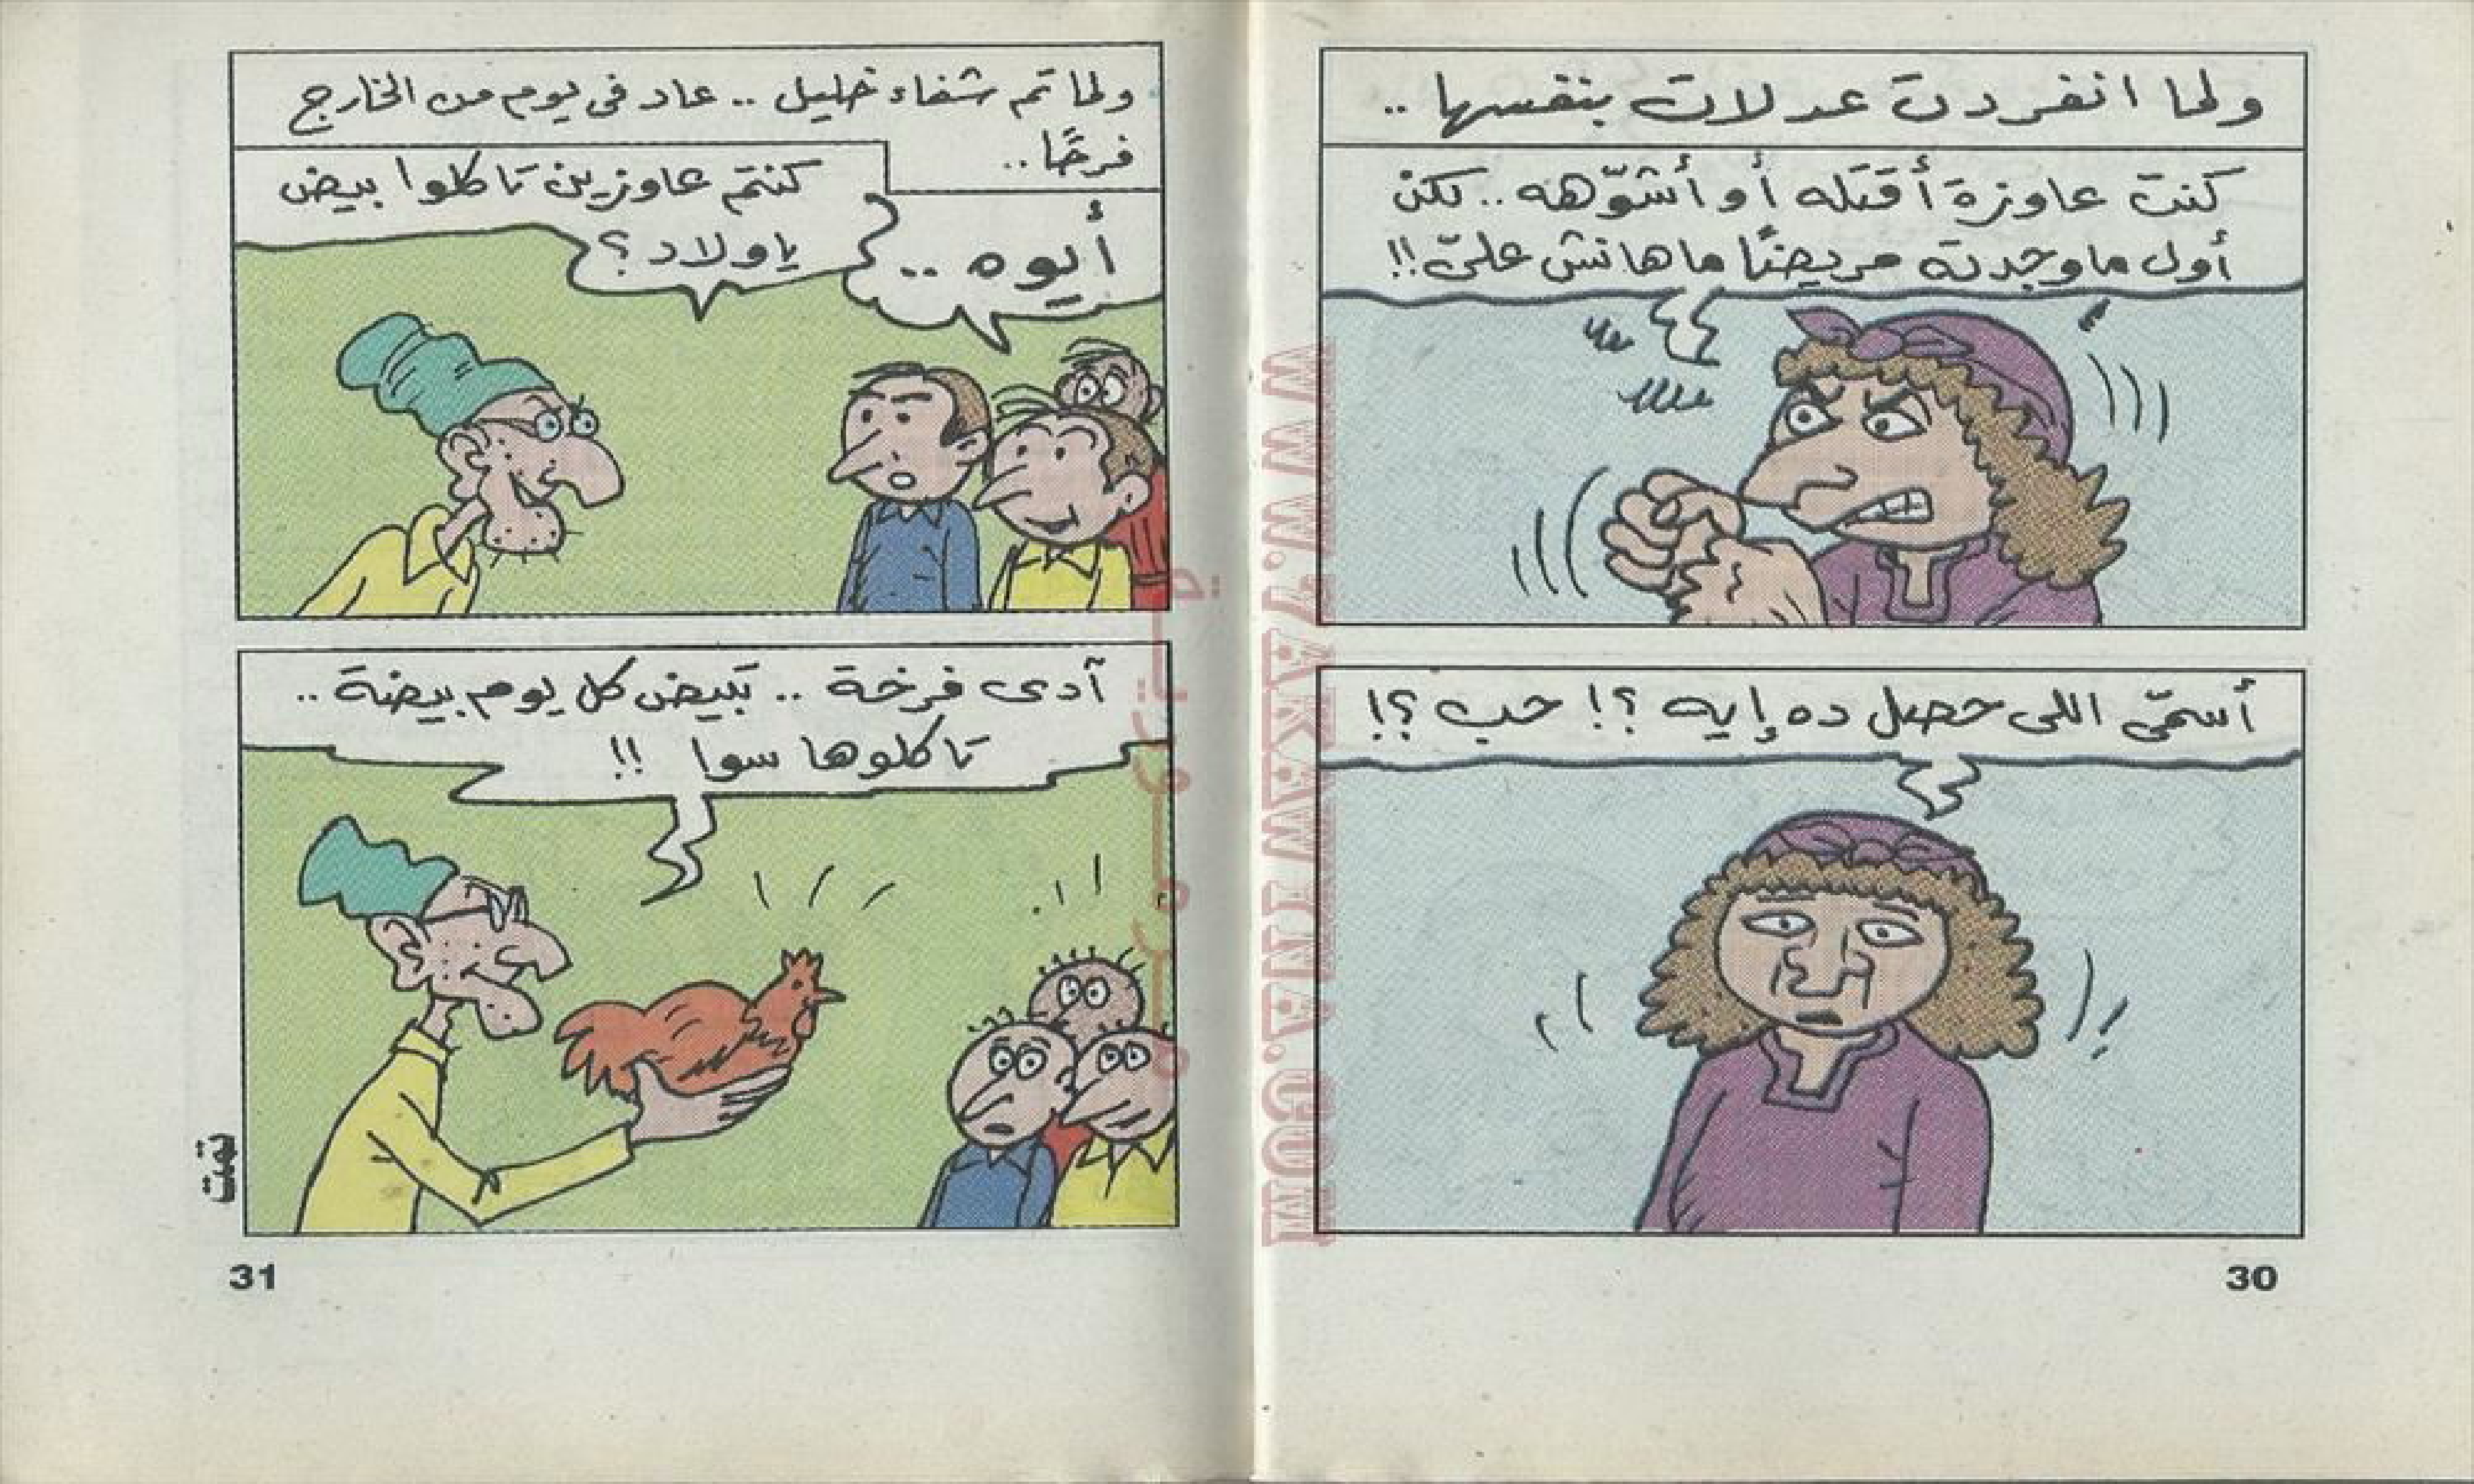 ولما انفردت عدلات بنفسها ..
كنت عاوزة أقتله أو أشوّهه .. لكن
أول ما وجدته مريضًا ما هانش عليّ !!
أسمّى اللى حصل ده إيه ؟! حب ؟!
30
ولما تم شفاء خليل .. عاد فى يوم من الخارج
فرحًا ..
كنتم عاوزين تاكلوا بيض
يا ولاد ؟
أيوه ..
آدى فرخة .. تبيض كل يوم بيضة ..
تاكلوها سوا !!
تمت
31
WWW.ZAKAWITNA.COM